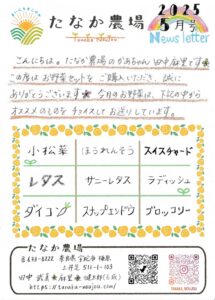 たなか農場
Tanaka Noujou
2025
5月号
Newsletter
こんにちは。たなか農場のかあちゃん 田中麻里です☀
この度はお野菜セットをご購入いただき、誠に
ありがとうございます☀ 今月のお野菜は、下記の中から
オススメのものをチョイスしてお送りしています。
小松菜 ほうれんそう スイスチャード
レタス サニーレタス ラディッシュ
ダイコン スナップエンドウ ブロッコリー
たなか農場
〒633-0222 奈良県宇陀市榛原
田中
TANAKA_NOUJOU